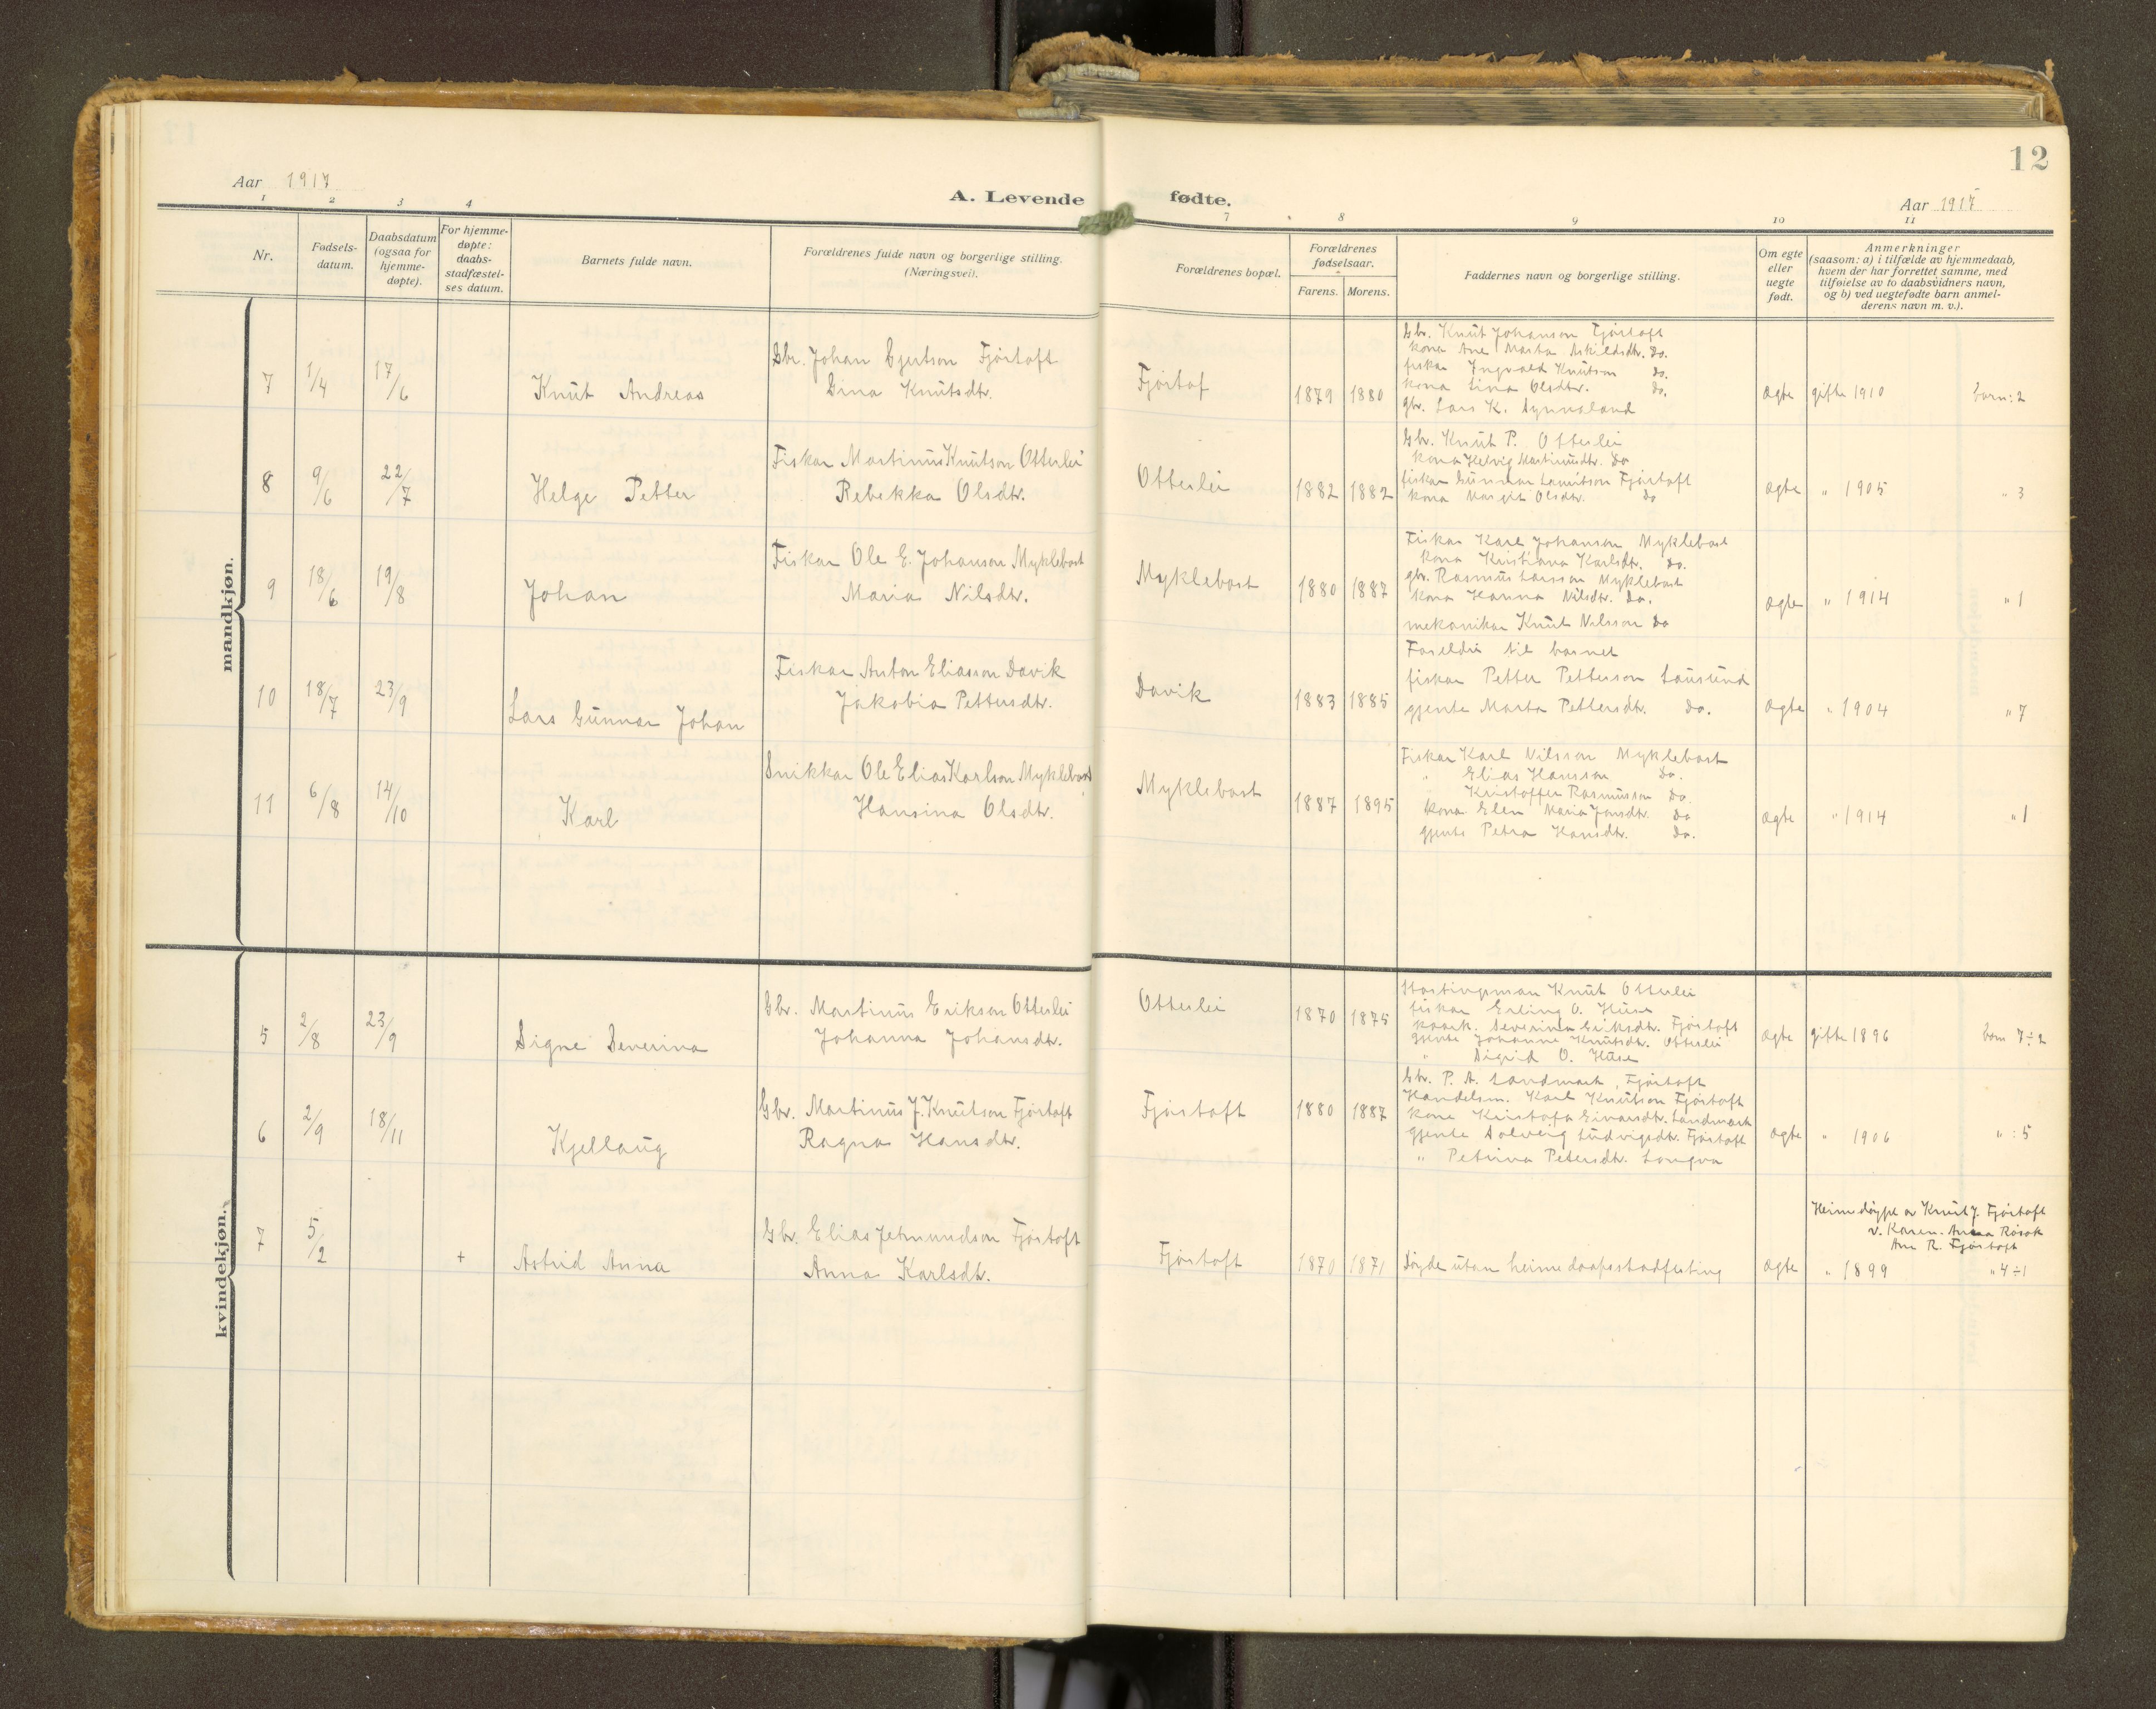 12
Aar 1917
A. Levende fødte.
Aar 1917
1 2 3 4 7 8 9 10 11
Nr.
Fødsels-
datum.
Daabsdatum
(ogsaa for
hjemme-
døpte).
For hjemme-
døpte:
daabs-
stadfæstel-
ses datum.
Barnets fulde navn.
Forældrenes fulde navn og borgerlige stilling.
(Næringsvei).
Forældrenes bopæl.
Forældrenes
fødselsaar.
Farens. Morens.
Faddernes navn og borgerlige stilling.
Om egte
eller
uegte
født.
Anmerkninger
(saasom: a) i tilfælde av hjemmedaab,
hvem der har forrettet samme, med
tilføielse av to daabsvidners navn,
og b) ved uegtefødte barn anmel-
derens navn m. v.).
mandkjøn.
7 1/4 17/6 Knut Andreas
Gbr. Johan Gjertson Fjörtoft
Gina Knutsdtr.
Fjörtof 1879 1880
Gbr. Knut Johanson Fjörtoft
kona Ane Marta Askildsdtr. Do.
fiskar Ingvald Knutson do.
kona Lina Olsdtr. do.
gbr. Lars K. Synnaland
ægte gifte 1910 barn: 2
8 9/6 22/7 Helge Petter
Fiskar Martinus Knutson Otterlei
Rebekka Olsdtr.
Otterlei 1882 1882
Gbr. Knut P. Otterlei
kona Helvig Martinusdtr. Do
fiskar Gunnar Fjörtoft
kona Margit Olsdtr. do
ægte " 1905 " 3
9 18/6 19/8 Johan
Fiskar Ole E. Johanson Myklebost
Maria Nilsdtr.
Myklebost 1880 1887
Fiskar Karl Johanson Myklebost
kona Kristiana Karlsdtr. Do.
gbr. Rasmus Larsson Myklebost
kona Hanna Nilsdtr. Do.
mekanikar Knut Nilsson Do
ægte " 1914 " 1
10 18/7 23/9 Lars Gunnar Johan
Fiskar Anton Eliasson Davik
Jakobia Pettersdtr.
Davik 1883 1885
Foreldri til barnet
fiskar Petter Petterson Lausund
gjente Marta Pettersdtr. do.
ægte " 1904 " 7
11 6/8 14/10 Karl
Snikkar Ole Elias Karlson Myklebost
Hansina Olsdtr.
Myklebost 1887 1895
Fiskar Karl Nilsson Myklebost
" Elias Hansson Do.
" Kristoffer Rasmusson Do.
kona Elen Maria Jonsdtr. Do
gjente Petra Hansdtr. Do.
ægte " 1914 " 1
kvindekjøn.
5 2/8 23/9 Signe Severina
Gbr. Martinus Erikson Otterlei
Johanna Johansdtr.
Otterlei 1870 1875
Stortingsman Knut Otterlei
fiskar Erling O. Huse
Severina Eriksdtr. Fjörtoft
gjente Johanne Knutsdtr. Otterlei
" Sigrid O. Huse
ægte gifte 1896 barn 7÷2
6 2/9 18/11 Kjellaug
Gbr. Martinus J. Knutson Fjörtoft
Ragna Hansdtr.
Fjörtoft 1880 1887
Gbr. P. A. Landmark, Fjörtoft
Handelsm. Karl Knutson Fjörtoft
kone Kristofa Einarsdtr. Landmark
gjente Solveig Ludvigsdtr. Fjörtoft
" Petrina Petersdtr. Longva
ægte " 1906 " : 5
7 5/2 + Astrid Anna
Gbr. Elias Jetmundson Fjörtoft
Anna Karlsdtr.
Fjörtoft 1870 1871
Döyde utan heimedaapsstadfesting
ægte
Heimedöypt av Knut J. Fjörtoft
v. Karen-Anna Rösok
Ane R. Fjörtoft
" 1899 " 4÷1